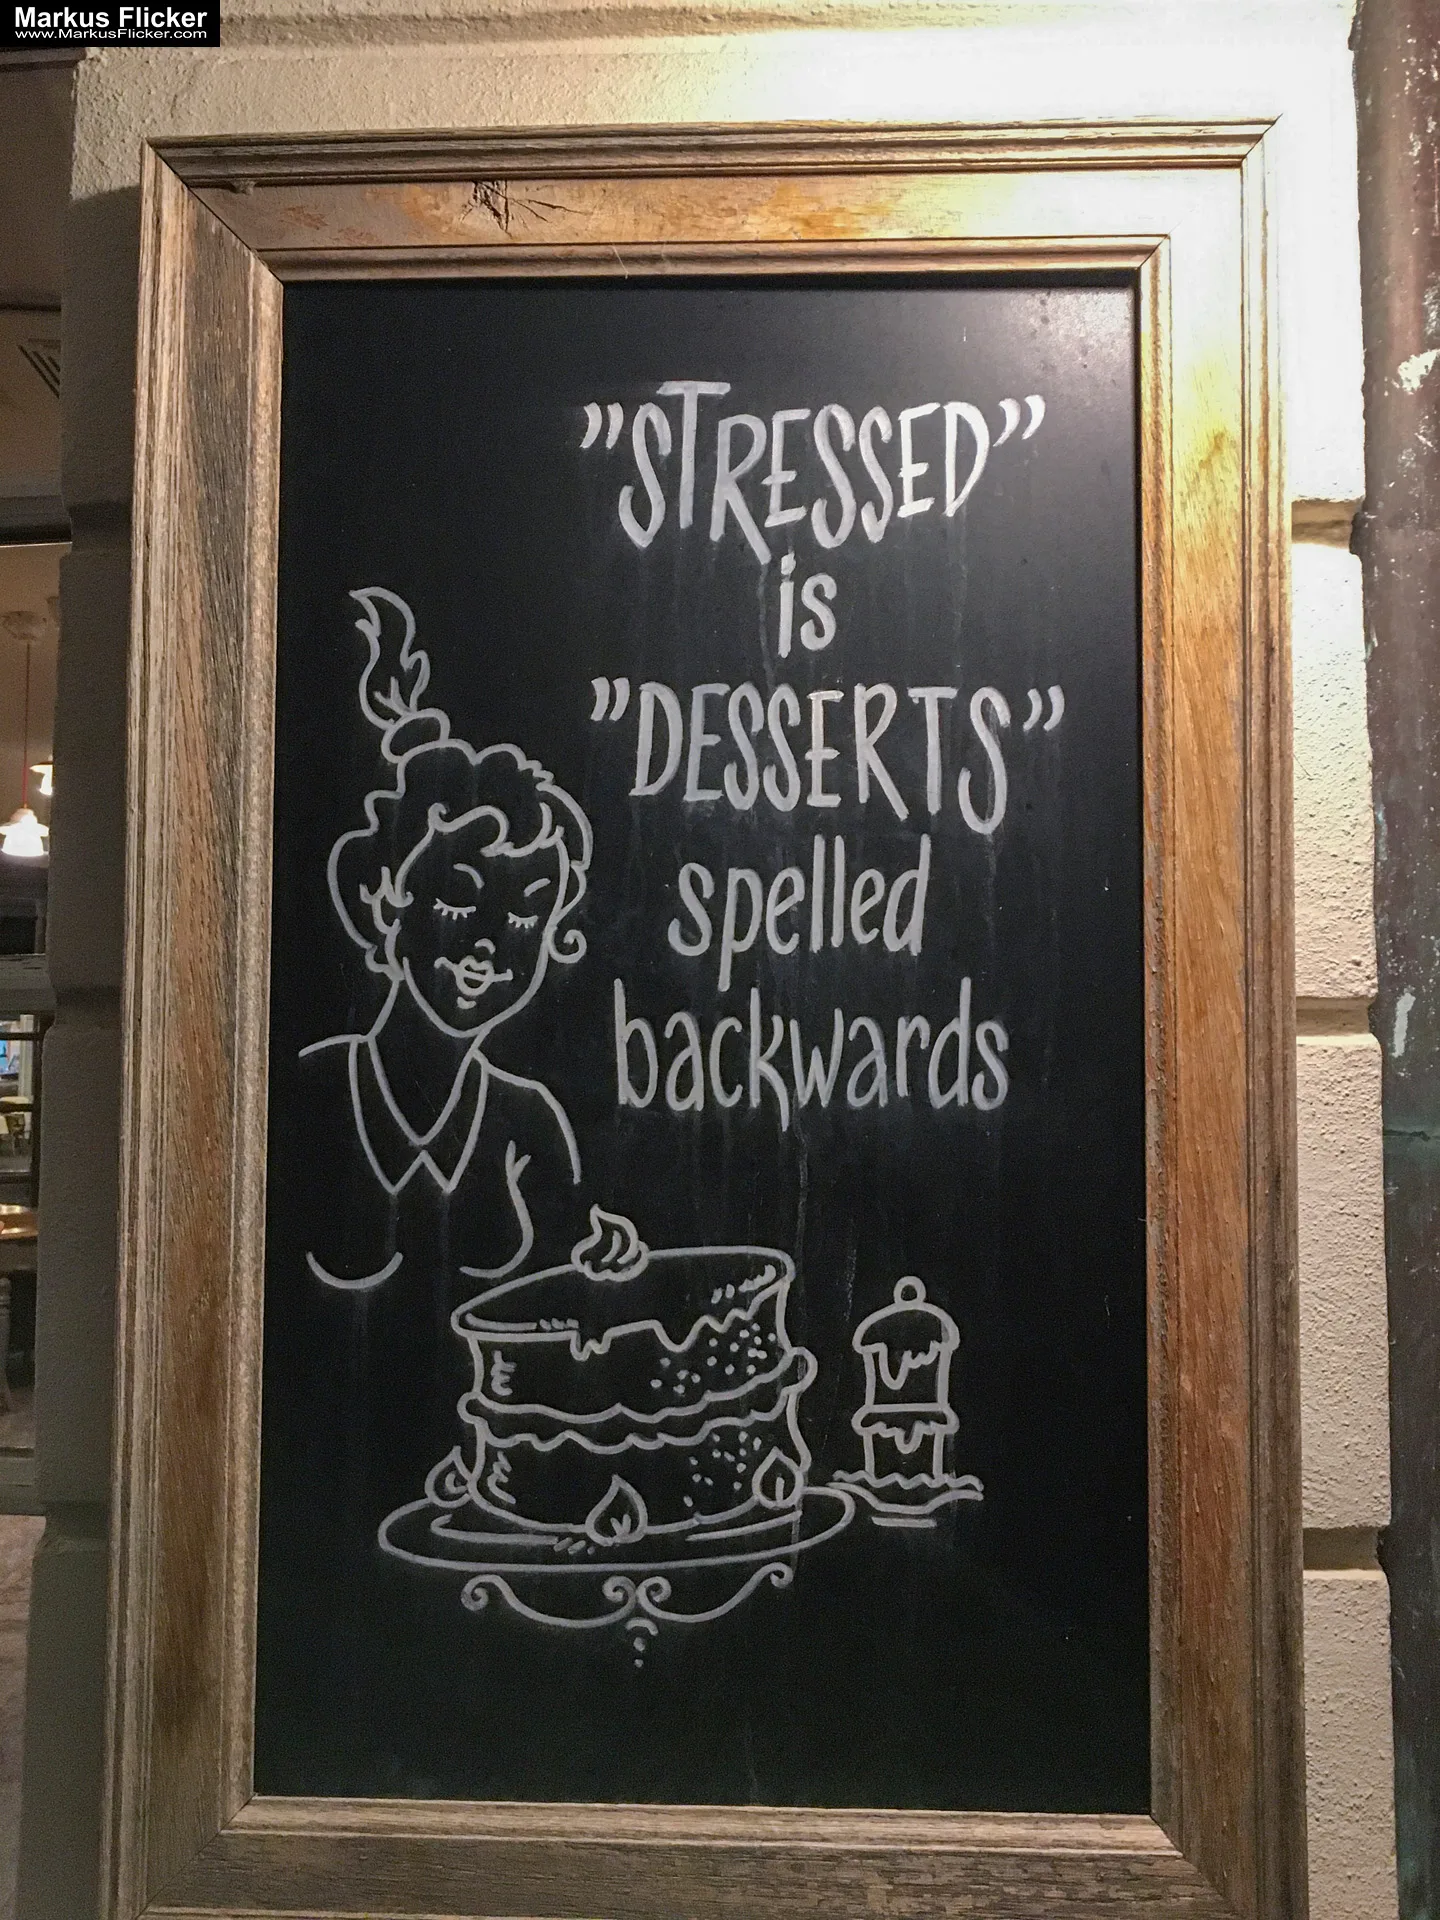 Markus Flicker
www.MarkusFlicker.com
”STRESSED”
is
”DESSERTS”
spelled
backwards